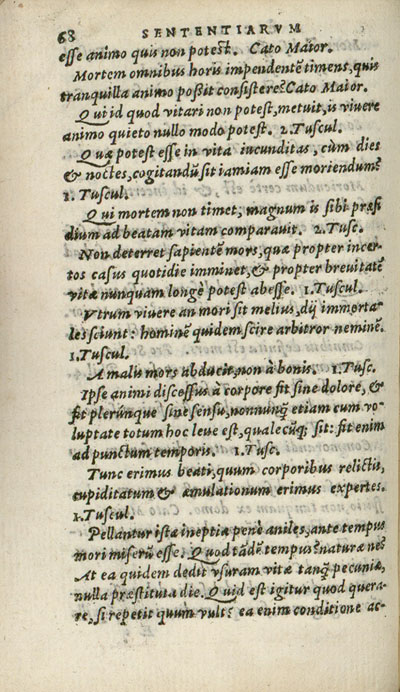 68 SENTENTIARVM
esse animo quis non potest. Cato Maior.
Mortem omnibus horis impendentē timens, quis
tranquilla animo possit consistere? Cato Maior.
Qui id quod vitari non potest, metuit, is vivere
animo quieto nullo modo potest. 2. Tuscul.
Quæ potest esse in vita iucunditas, cùm dies
& noctes, cogitandū sit iamiam esse moriendum?
1. Tuscul.
Qui mortem non timet, magnum is sibi præsi
dium ad beatam vitam comparauit. 2. Tusc.
Non deterret sapientē mors, quæ propter incer-
tos casus quotidie imminet, & propter breuitatē
vitæ nunquam longè potest abesse. 1. Tuscul.
Vtrum viuere an mori sit melius, dij immorta-
les sciunt: hominē quidem scire arbitror neminē.
1. Tuscul.
A malis mors abducit, non à bonis. 1. Tusc.
Ipse animi discessus à corpore fit sine dolore, &
fit plerunque sine sensu, nonnunq̃ etiam cum vo-
luptate totum hoc leue est, qualecūq; sit: fit enim
ad punctum temporis. 1. Tusc.
Tunc erimus beati, quum corporibus relictis,
cupiditatum & æmulationum erimus expertes.
1. Tuscul.
Pellantur istæ ineptiæ penè aniles, ante tempus
mori miserū esse. Quod tādē tempus? naturæ ne?
At ea quidem dedit vsuram vitæ tanq̃ pecuniæ,
nulla præstituta die. Quid est igitur quod quera-
re, si repetit quum vult? ea enim conditione ac-